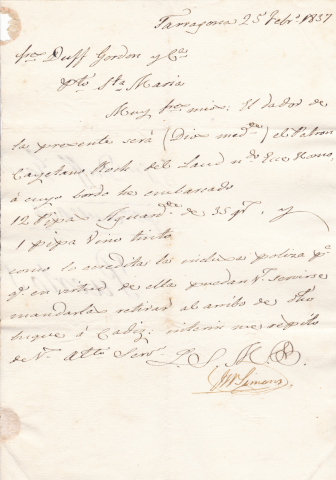 Tarragona 25 Febro. 1857
Sres. Duff Gordon y Ca.
Pto. Sta. Maria
Muy Sres. mios: El dador de
la presente será (Dios medte.) el Patron
Cayetano Roch del Laud ndo. Ecce Homo,
á cuyo bordo he embarcado
12 Pipas Aguarte. de 35 gs. y
1 pipa Vino tinto
como lo acredita la inclusa poliza pa.
qe. en virtud de ella puedan Vs. servirse
mandarla retirar al arribo de dho
buque á Cadiz; interin me repito
de Vs. atto. Servr. Q. S. M. B.
Simons